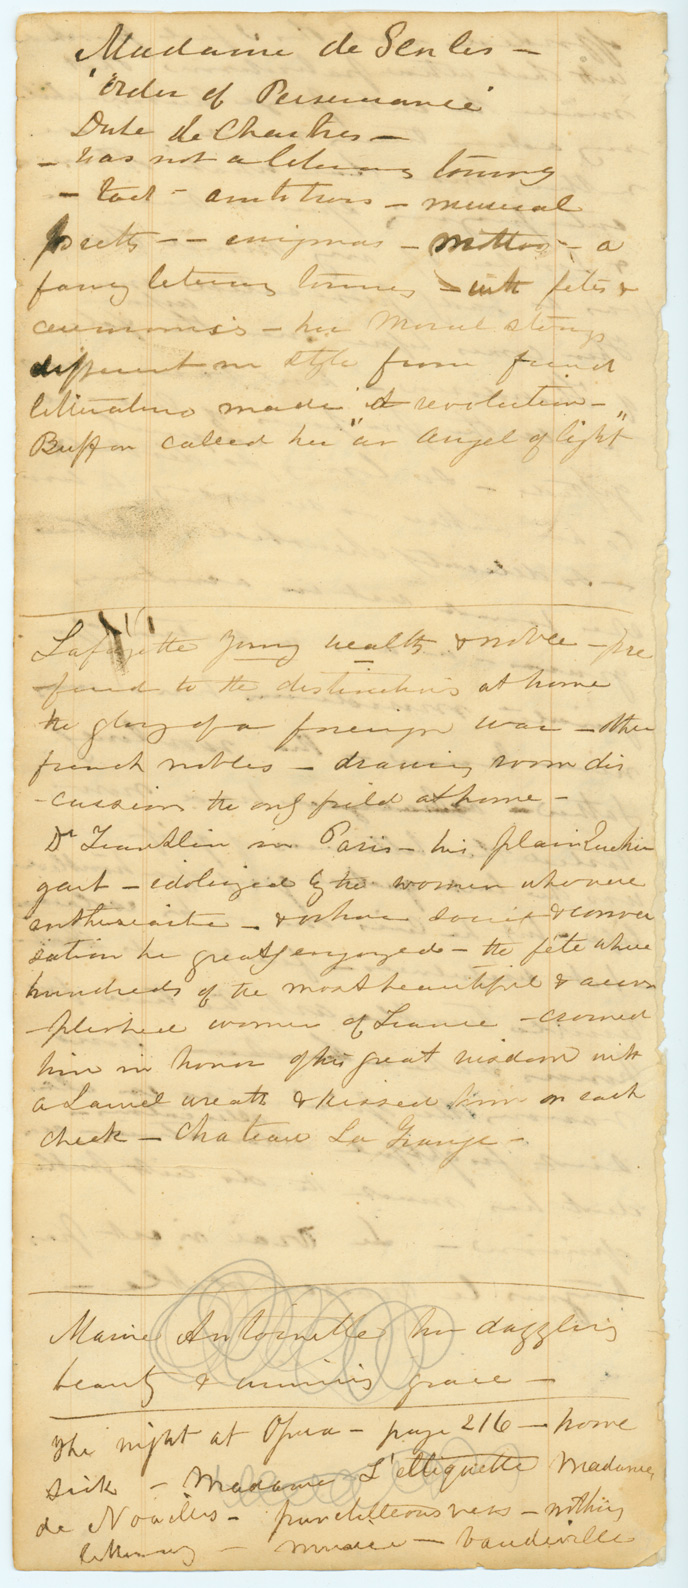 Madame de Genlis —
"Order of Perseverance"
Duke de Chartres —
— was not a literary
— tact — ambitious — musical
— — enigmas — mottos — a
literary — with fetes &
ceremonies — her Moral
different in style from french
literature made revolution —
Buffon called her "an Angel of light"
Lafayette young wealthy & noble — pre
ferred to the distinctions at home
the glory of a foreign war — other
french nobles — drawing room dis
-cussions the only field at home —
Dr Franklin in Paris — his plain Quaker
garb — idolized by the women who were
enthusiastic — & whose society & conver
sation he greatly enjoyed — the fete where
hundreds of the most beautiful & accom
-plished women of France — crowned
him in honor of his great wisdom with
a Laurel wreath & kissed him on each
cheek — Chateau La Grange —
Marie Antoinette her dazzling
beauty & winning grace —
The night at Opera — page 216 — home
sick — Madame L'etiquette Madame
de Noailles — punctilleousness — nothing
literary — music — vaudeville